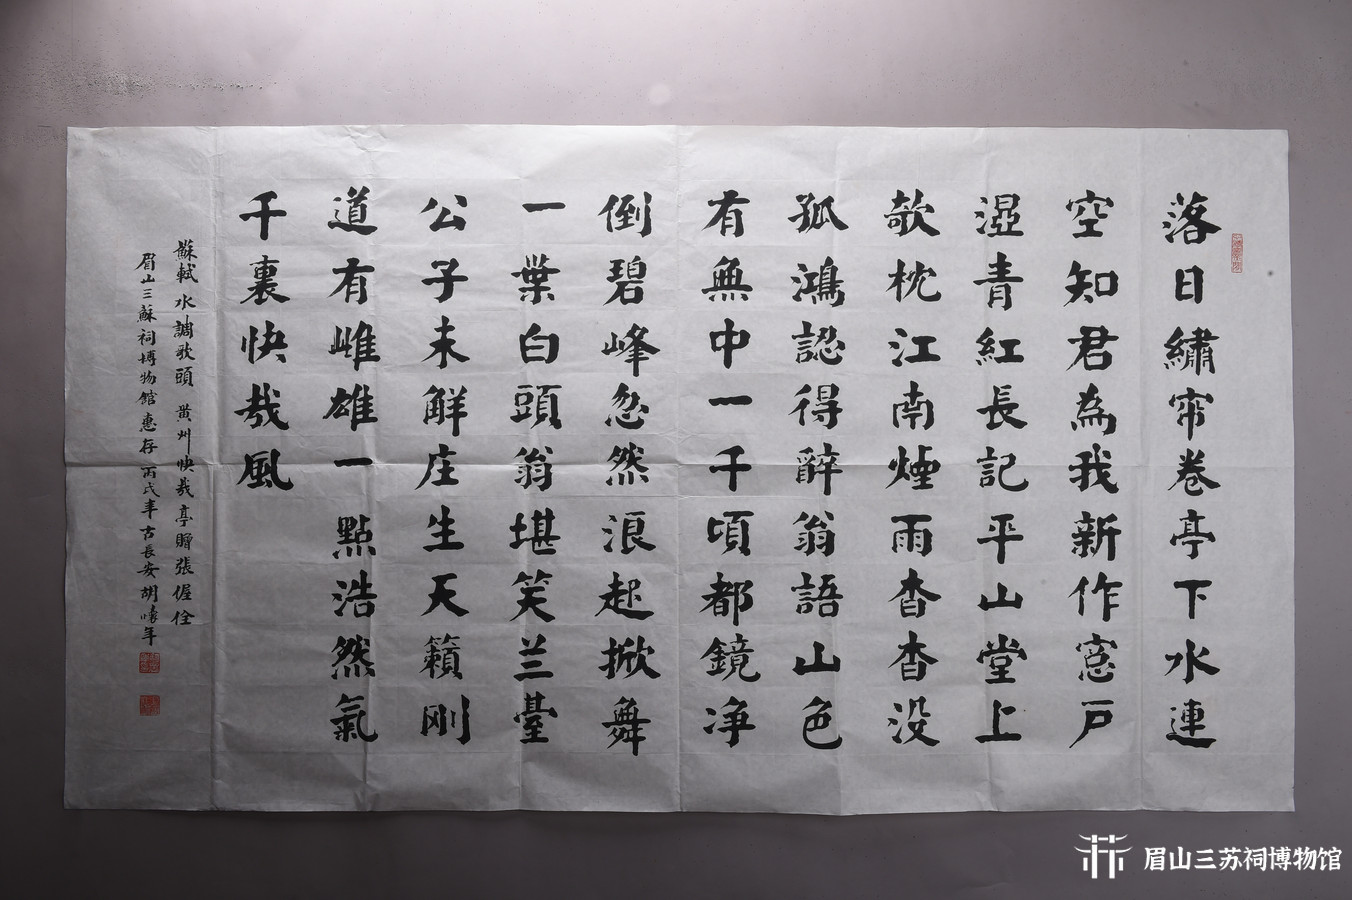 落日繡帘卷亭下水連
空知君為我新作窓戸
溼青紅長記平山堂上
欹枕江南煙雨杳杳没
孤鴻認得醉翁語山色
有無中一千頃都鏡净
倒碧峰忽然浪起掀舞
一葉白頭翁堪笑兰臺
公子未解庄生天籟刚
道有雌雄一點浩然氣
千裏快哉風
蘇軾水調歌頭黄州快哉亭贈張偓佺
眉山三蘇祠博物館惠存丙戌年古長安胡懷年
眉山三苏祠博物馆